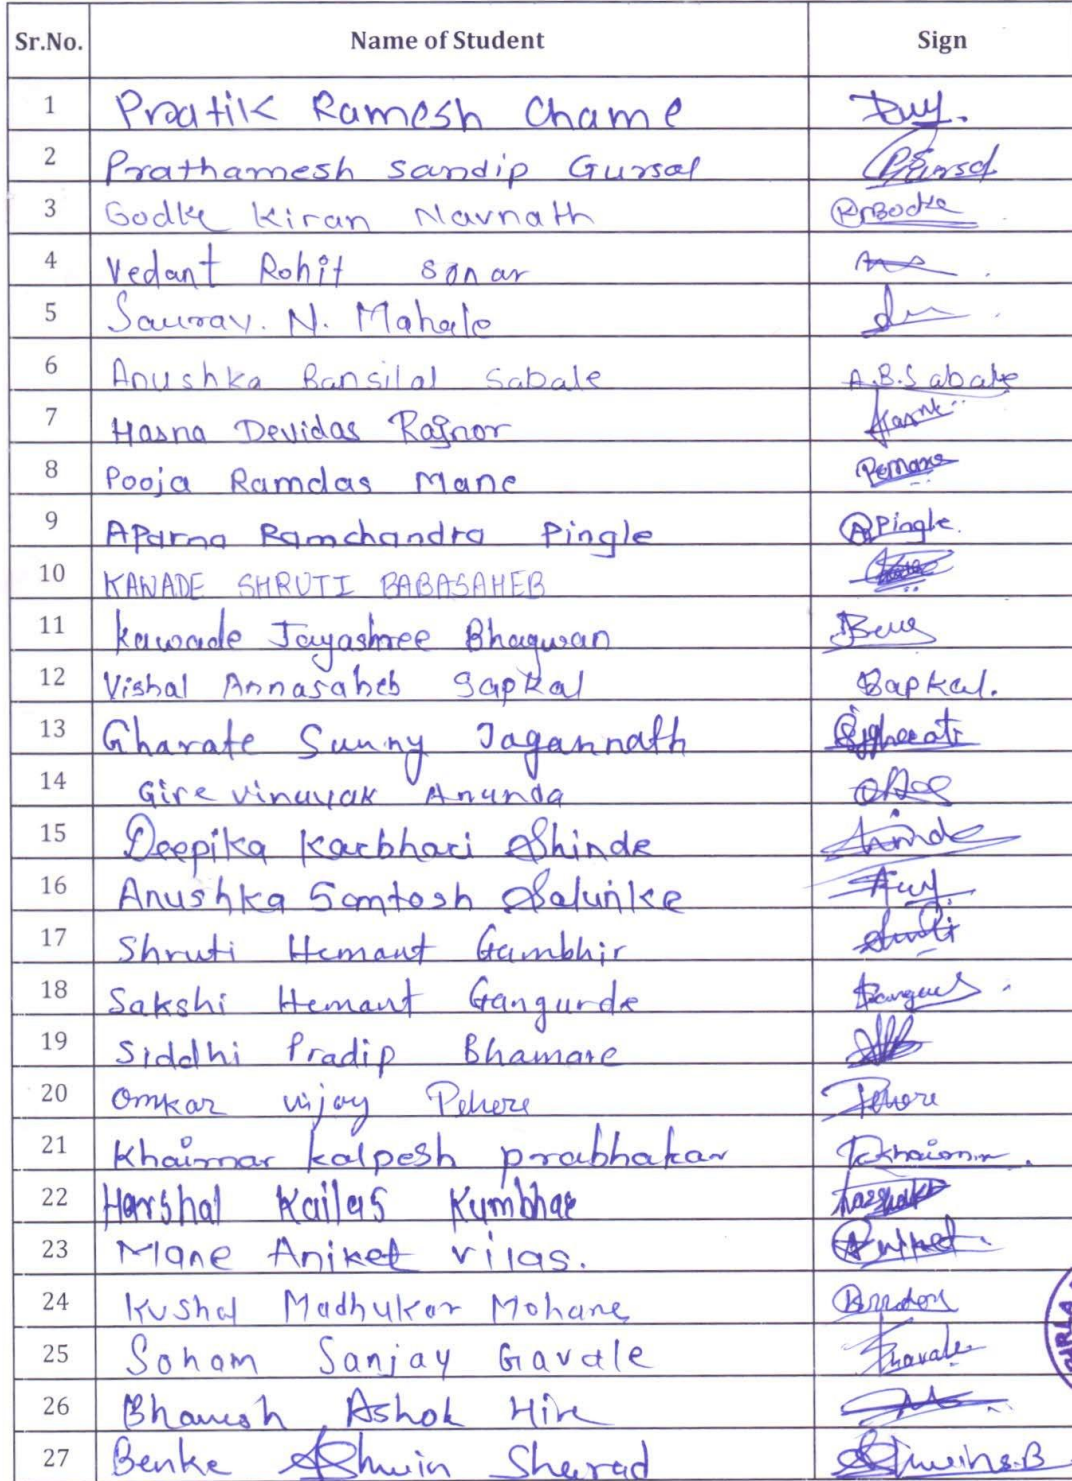 Sr.No. Name of Student Sign
1 Pratik Ramesh Chame
2 Prathamesh Sandip Gursal
3 Godke Kiran Navnath
4 Vedant Rohit Sonar
5 Saurav. N. Mahale
6 Anushka Bansilal Sabale A.B.Sabale
7 Hasna Devidas Rajnor
8 Pooja Ramdas Mane
9 Aparna Ramchandra Pingle APingle.
10 KAWADE SHRUTI BABASAHEB
11 Kawade Jayashree Bhagwan
12 Vishal Annasaheb Sapkal Sapkal.
13 Gharate Sunny Jagannath
14 Gire vinayak Ananda
15 Deepika Karbhari Shinde
16 Anushka Santosh Salunke
17 Shruti Hemant Gambhir
18 Sakshi Hemant Gangurde
19 Siddhi Pradip Bhamare
20 Omkar vijay Pehere Pehere
21 Khairnar kalpesh prabhakar
22 Harshal Kailas Kumbhar
23 Mane Aniket vilas. Aniket.
24 Kushal Madhukar Mohane
25 Soham Sanjay Gavale
26 Bhavesh Ashok Hire
27 Benke Ashwin Sharad Ashwins.B